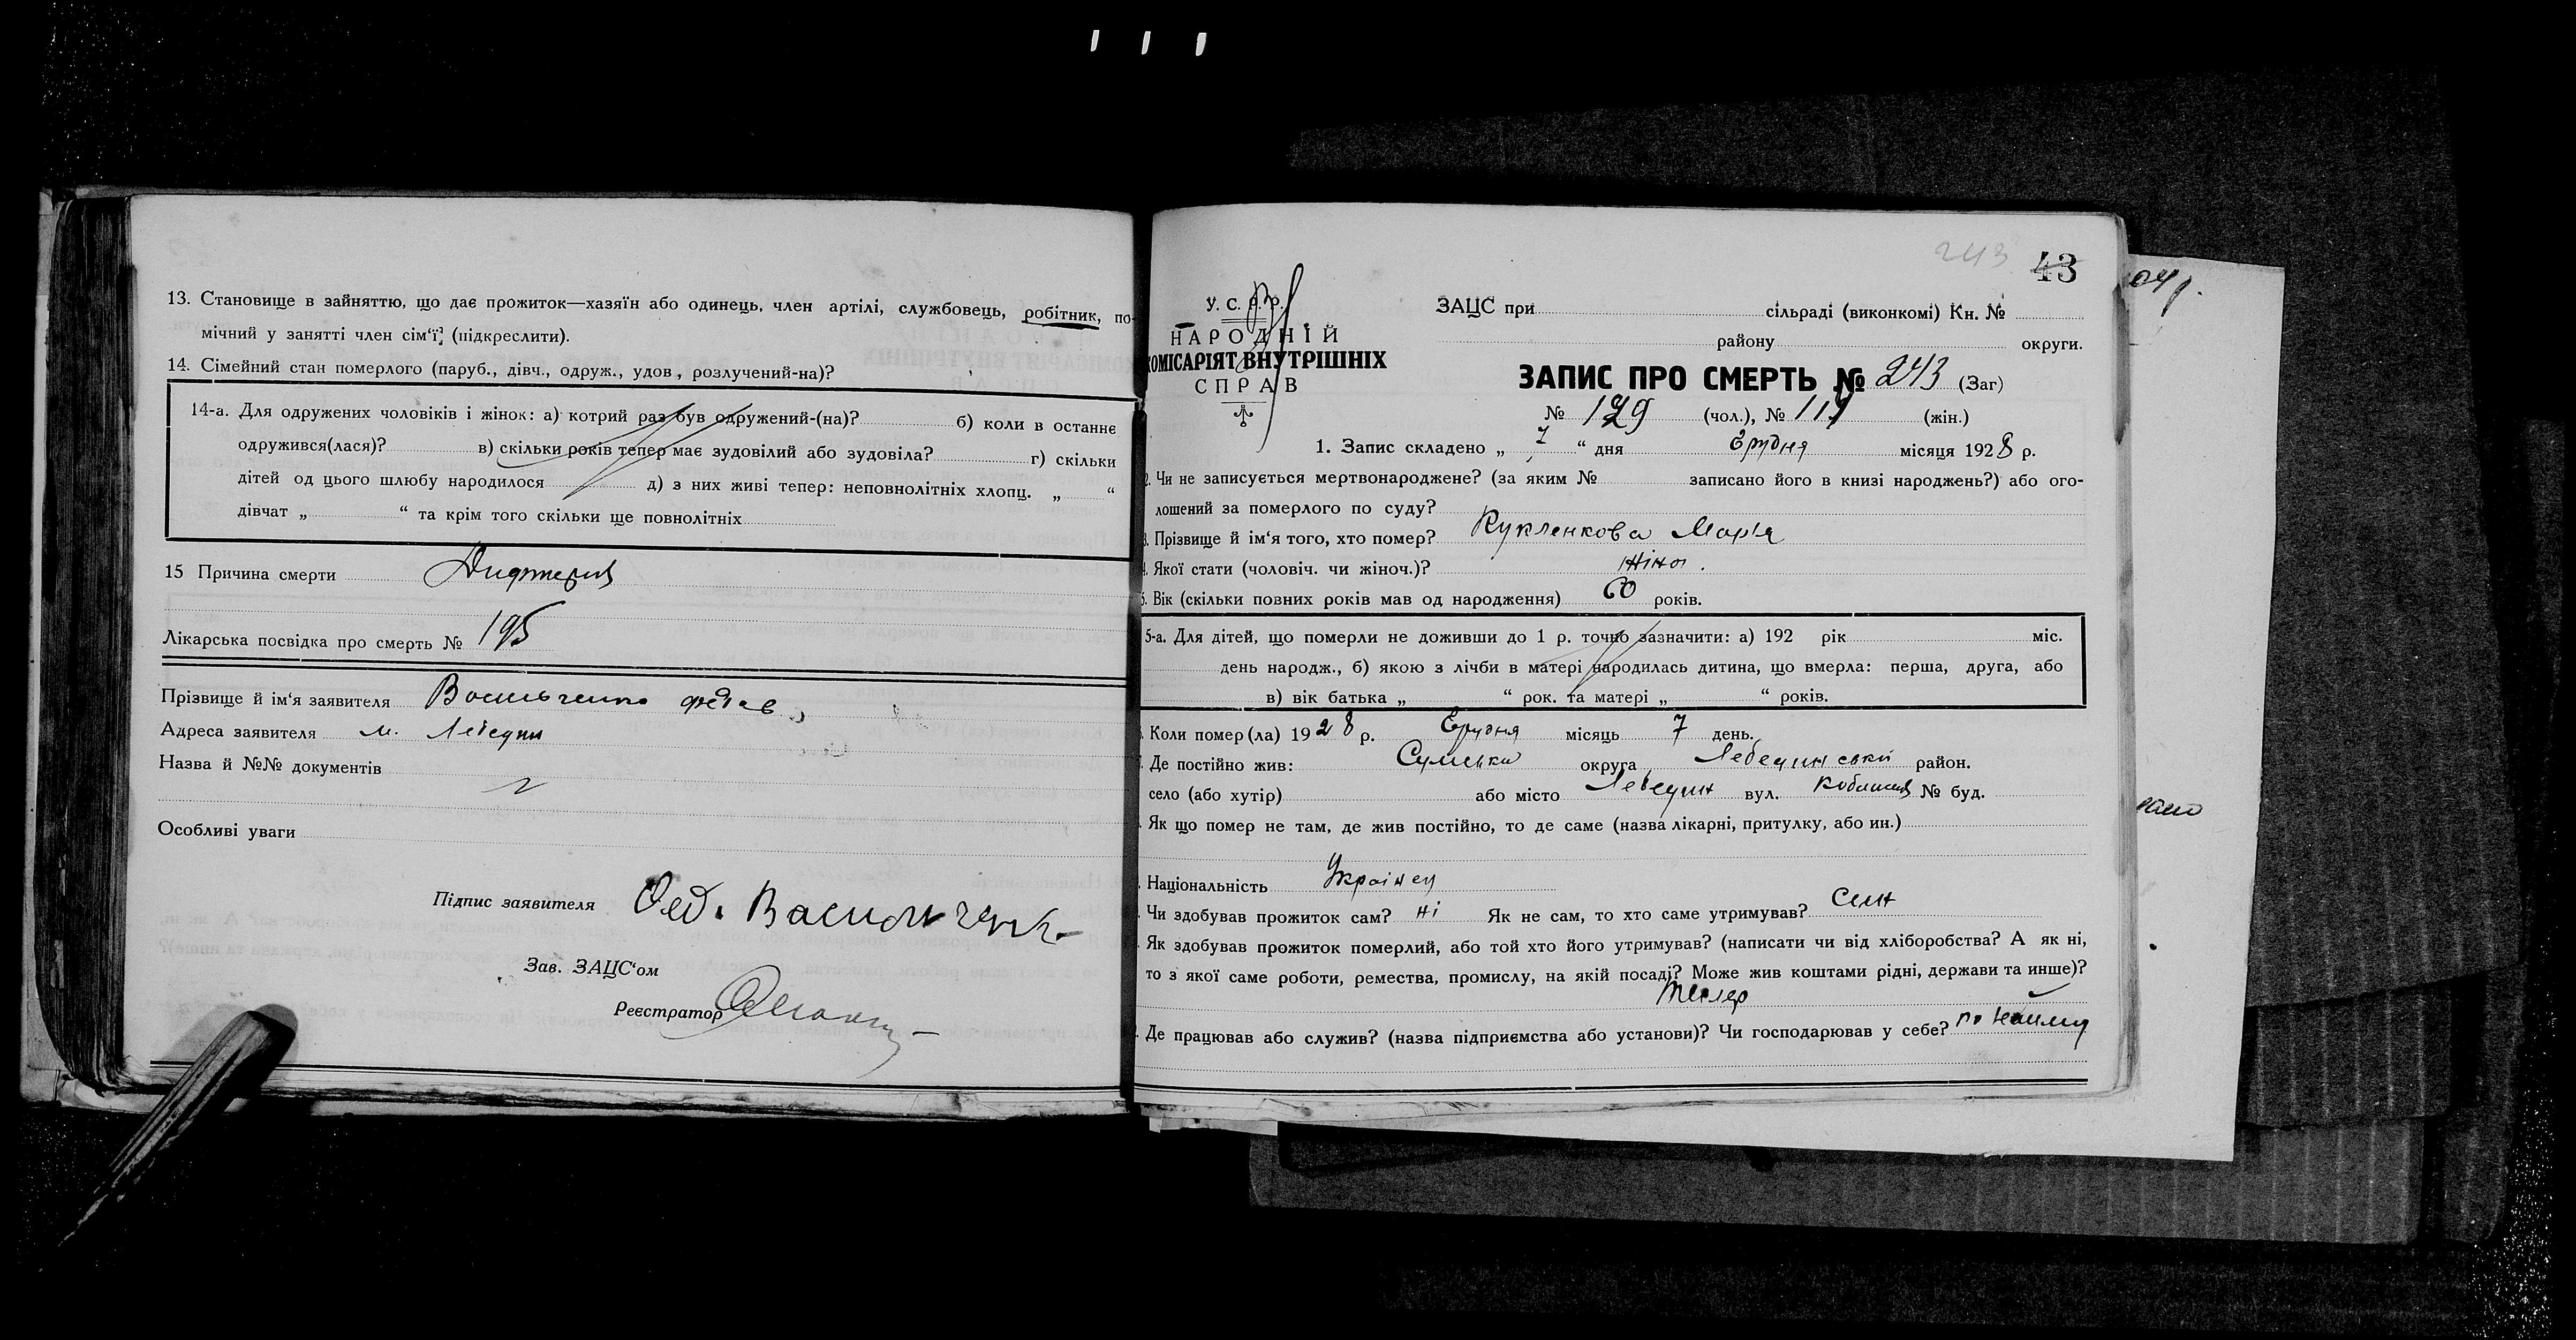 13. Становище в зайняттю, що дає прожиток—хазяїн або одинець, член артілі, службовець, робітник, по-
мічний у занятті член сім‘ї, (підкреслити).
14. Сімейний стан померлого (паруб., дівч., одруж., удов., розлучений-на)?
14-а. Для одружених чоловіків і жінок: а) котрий раз був одружений-(на)? б) коли в останнє
одружився(лася)? в) скільки років тепер має зудовілий або зудовіла? г) скільки
дітей од цього шлюбу народилося д) з них живі тепер: неповнолітніх хлопц. „ “
дівчат „ “ та крім того скільки ще повнолітніх
15 Причина смерти Дифтерия
Лікарська посвідка про смерть № 195
Прізвище й ім‘я заявителя Васильченко Федев
Адреса заявителя м. Лебедин
Назва й №№ документів
Особливі уваги
Підпис заявителя Фед. Васильченко
Зав. ЗАЦС‘ом
Реєстратор
243
43
У. С. Р. Р.
НАРОДНІЙ
КОМІСАРІЯТ ВНУТРІШНІХ
СПРАВ
ЗАЦС при сільраді (виконкомі) Кн. №
району округи.
ЗАПИС ПРО СМЕРТЬ № 243 (Заг)
№ 129 (чол.), № 119 (жін.)
1. Запис складено „ 7 “ дня Грудня місяця 1928 р.
2. Чи не записується мертвонароджене? (за яким № записано його в книзі народжень?) або ого-
лошений за померлого по суду?
3. Прізвище й ім‘я того, хто помер? Кукленкова Мар‘я
4. Якої стати (чоловіч. чи жіноч.)? жіно.
5. Вік (скільки повних років мав од народження) 60 років.
5-а. Для дітей, що померли не доживши до 1 р. точно зазначити: а) 192 рік міс.
день народж., б) якою з лічби в матері народилась дитина, що вмерла: перша, друга, або
в) вік батька „ “ рок. та матері „ “ років.
Коли помер(ла) 1928 р. Грудня місяць 7 день.
Де постійно жив: Сумська округа Лебединський район.
село (або хутір) або місто Лебедин вул. № буд.
Як що помер не там, де жив постійно, то де саме (назва лікарні, притулку, або ин.)
Національність Українец
Чи здобував прожиток сам? ні Як не сам, то хто саме утримував? Син
Як здобував прожиток померлий, або той хто його утримував? (написати чи від хліборобства? А як ні,
то з якої саме роботи, ремества, промислу, на якій посаді? Може жив коштами рідні, держави та инше)?
Тесляр
Де працював або служив? (назва підприємства або установи)? Чи господарював у себе? по найму